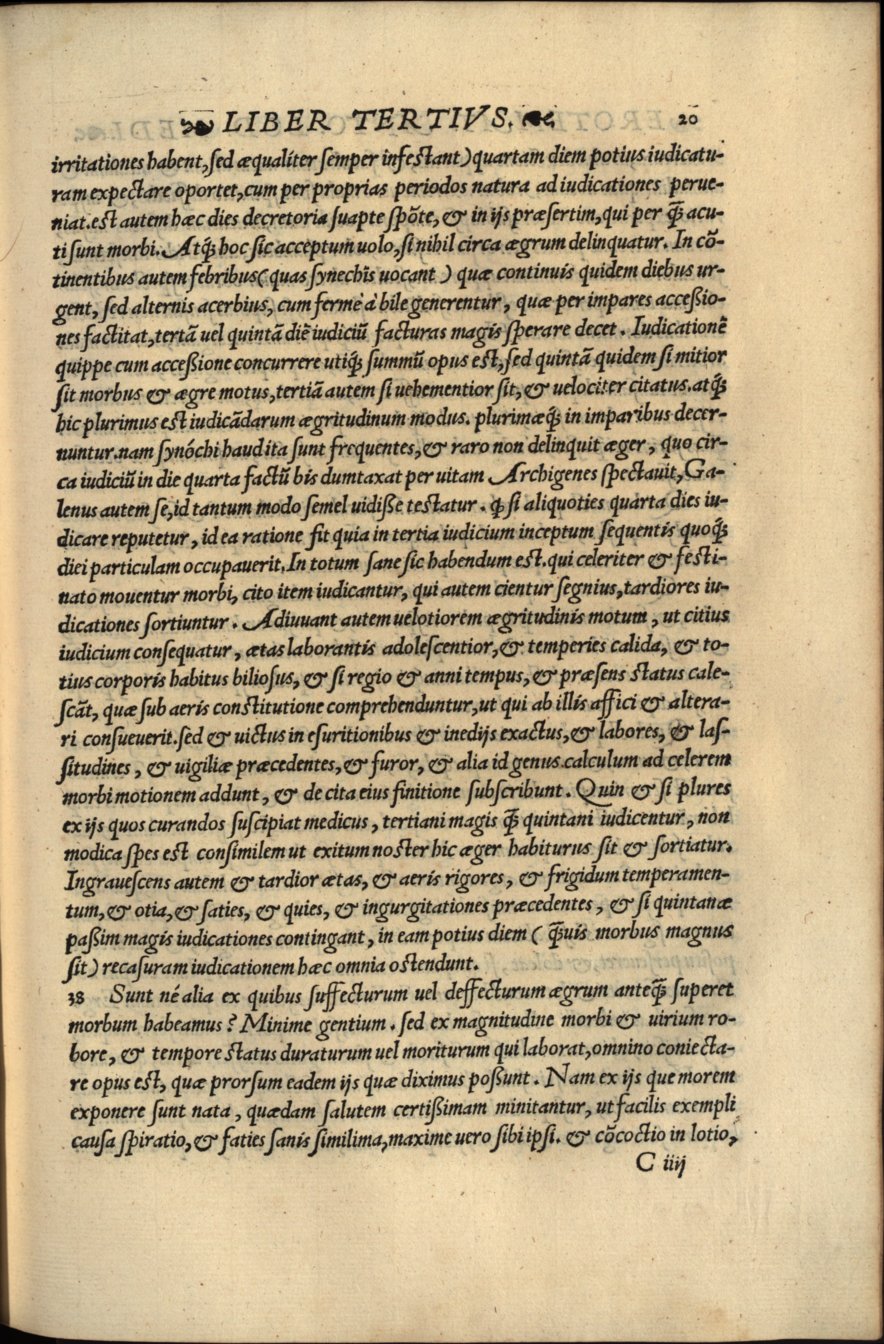 LIBER TERTIVS. 20
irritationes habent, sed æqualiter semper infestant) quartam diem potius iudicatu-
ram expectare oportet, cum per proprias periodos natura ad iudicationes perue-
niat. est autem hæc dies decretoria suapte spõte, & in ijs præsertim, qui per q̃ꝫ acu-
ti sunt morbi. Atq̃ꝫ hoc sic acceptum uolo, si nihil circa ægrum delinquatur. In cõ-
tinentibus autem febribus (quas synechis uocant) quæ continuis quidem diebus ur-
gent, sed alternis acerbius, cum fermè à bile generentur, quæ per impares acceßio-
nes factitat, tertã uel quintã diẽ iudiciũ facturas magis sperare decet. Iudicationẽ
quippe cum acceßione concurrere utiq̃ꝫ summũ opus est, sed quintã quidem si mitior
sit morbus & ægre motus, tertiã autem si uehementior sit, & uelociter citatus. atq̃ꝫ
hic plurimus est iudicãdarum ægritudinum modus. plurimæq̃ꝫ in imparibus decer-
nuntur. nam synóchi haud ita sunt frequentes, & raro non delinquit æger, quo cir-
ca iudiciũ in die quarta factũ bis dumtaxat per uitam Archigenes spectauit, Ga-
lenus autem se, id tantum modo semel uidiße testatur. q̃ꝫ si aliquoties quarta dies iu-
dicare reputetur, id ea ratione fit quia in tertia iudicium inceptum sequentis quoq̃ꝫ
diei particulam occupauerit. In totum sane sic habendum est. qui celeriter & festi-
nato mouentur morbi, cito item iudicantur, qui autem cientur segnius, tardiores iu-
dicationes sortiuntur. Adiuuant autem uelotiorem ægritudinis motum, ut citius
iudicium consequatur, ætas laborantis adolescentior, & temperies calida, & to-
tius corporis habitus biliosus, & si regio & anni tempus, & præsens status cale-
scãt, quæ sub aeris constitutione comprehenduntur, ut qui ab illis affici & altera-
ri consueuerit. sed & uictus in esuritionibus & inedijs exactus, & labores, & las-
situdines, & uigiliæ præcedentes, & furor, & alia id genus calculum ad celerem
morbi motionem addunt, & de cita eius finitione subscribunt. Quin & si plures
ex ijs quos curandos suscipiat medicus, tertiani magis q̃ꝫ quintani iudicentur, non
modica spes est consimilem ut exitum noster hic æger habiturus sit & sortiatur.
Ingrauescens autem & tardior ætas, & aeris rigores, & frigidum temperamen-
tum, & otia, & saties, & quies, & ingurgitationes præcedentes, & si quintanæ
paßim magis iudicationes contingant, in eam potius diem (q̃ꝫuis morbus magnus
sit) recasuram iudicationem hæc omnia ostendunt.
38 Sunt né alia ex quibus suffecturum uel deffecturum ægrum anteq̃ꝫ superet
morbum habeamus? Minime gentium. sed ex magnitudine morbi & uirium ro-
bore, & tempore status duraturum uel moriturum qui laborat, omnino coniecta-
re opus est, quæ prorsum eadem ijs quæ diximus poßunt. Nam ex ijs que morem
exponere sunt nata, quædam salutem certißimam minitantur, ut facilis exempli
causa spiratio, & faties sanis similima, maxime uero sibi ipsi. & cõcoctio in lotio,
C iiij